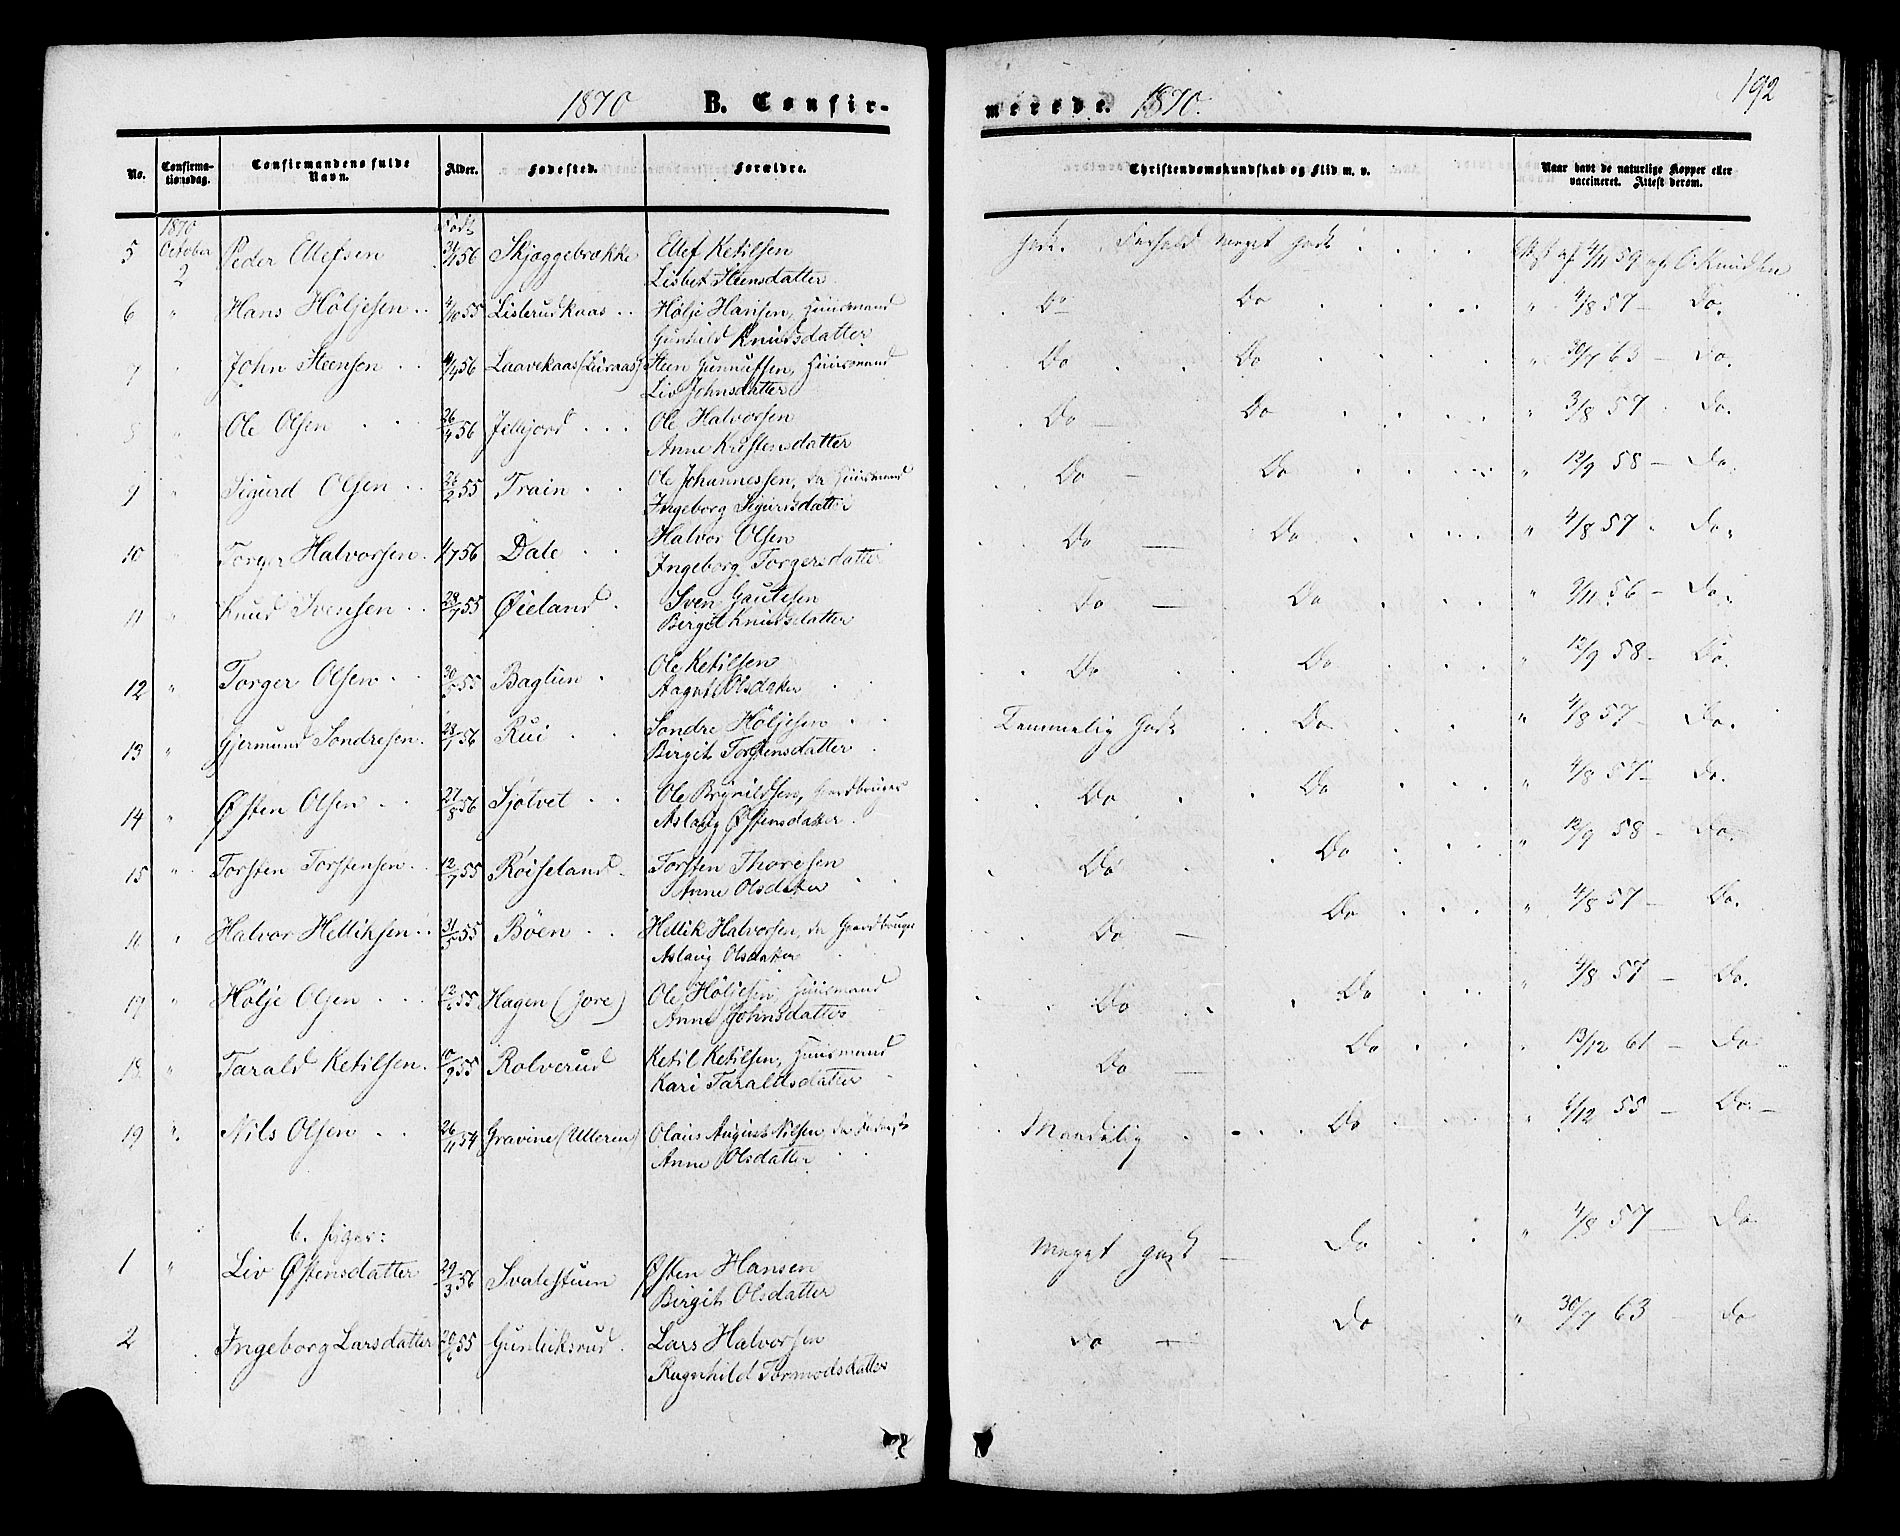 1870 B. Confir-
merede. 1870.
192
No. Confirma-tionsdag. Confirmandens fulde Navn. Alder. Fødested. Forældre. Christendomskundskab og Flid m. v. Naar havt de naturlige Kopper eller vaccineret. Attest derom.
1870 Født
5 October 2 Peder Ellefsen 56 Skjøggebrække Ellef Ketilsen godt. Forhold meget godt 4/11 59 af O Knudsen
Lisbet Steensdatter
6 " Hans Høljesen 4/10 55 Listerudkaas Hølje Hansen, Huusmand Do Do " 4/8 57 – Do.
Gunhild Knudsdatter
7 " John Steensen 56 Laavekaas Steen Gunnufsen, Huusmand Do Do " 30/7 63 – Do.
Liv Johnsdatter
8 " Ole Olsen 26/4 56 Ole Halvorsen Do Do " 3/8 57 Do.
Anne Kristensdatter
9 " Sigurd Olsen 26/2 55 Train Ole Johannessen, Huusmand Do Do " 12/9 58 – Do.
Ingeborg Sigursdatter
10 " Torger Halvorsen 1/7 56 Dale Halvor Olsen Do Do " 4/8 57 Do.
Ingeborg Torgersdatter
11 " Knud Svensen 29/7 55 Øieland Sven Gautesen Do Do " 56 – Do.
Birgit Knudsdatter
12 " Torger Olsen 30/5 55 Baglien Ole Ketilsen Do Do " 12/9 58 – Do.
Aagot Olsdatter
13 " Gjermund Sondresen 23/1 56 Rui Sondre Høljesen Temmelig Godt Do " 4/8 57 – Do.
Birgit Torstensdatter
14 " Østen Olsen 27/8 56 Sjotvet Ole Brynildsen, Gardbruger Do Do " 4/8 57 – Do.
Aslaug Østensdatter
15 " Torsten Torstensen 12/7 55 Roiseland Torsten Thoresen Do Do " 12/9 58 – Do.
Anne Olsdatter
" Halvor Helliksen 31/5 55 Bøen Hellik Halvorsen, Gardbruger Do Do " 4/8 57 – Do.
Aslaug Olsdatter
17 " Hølje Olsen 12/6 55 Hagen (Jore) Ole Høljesen, Huusmand Do Do " 4/8 57 – Do.
Anne Johnsdatter
18. " Tarald Ketilsen 10/9 55 Rolverud Ketil Ketilsen, Huusmand Do Do " 13/12 61 – Do
Kari Taraldsdatter
19 " Nils Olsen 26/11 54 Gravine Olaus August Nilsen Maadelig Do " 55 – Do. –
Anne Olsdatter
b. Piger:
1 " Liv Østensdatter 29/3 56 Svalestuen Østen Hansen Meget godt Do " 4/8 57 – Do.
Birgit Olsdatter
2 Ingeborg Larsdatter 20/6 55 Gunleiksrud Lars Halvorsen Do Do " 30/7 63 – Do
Ragnhild Tormodsdatter